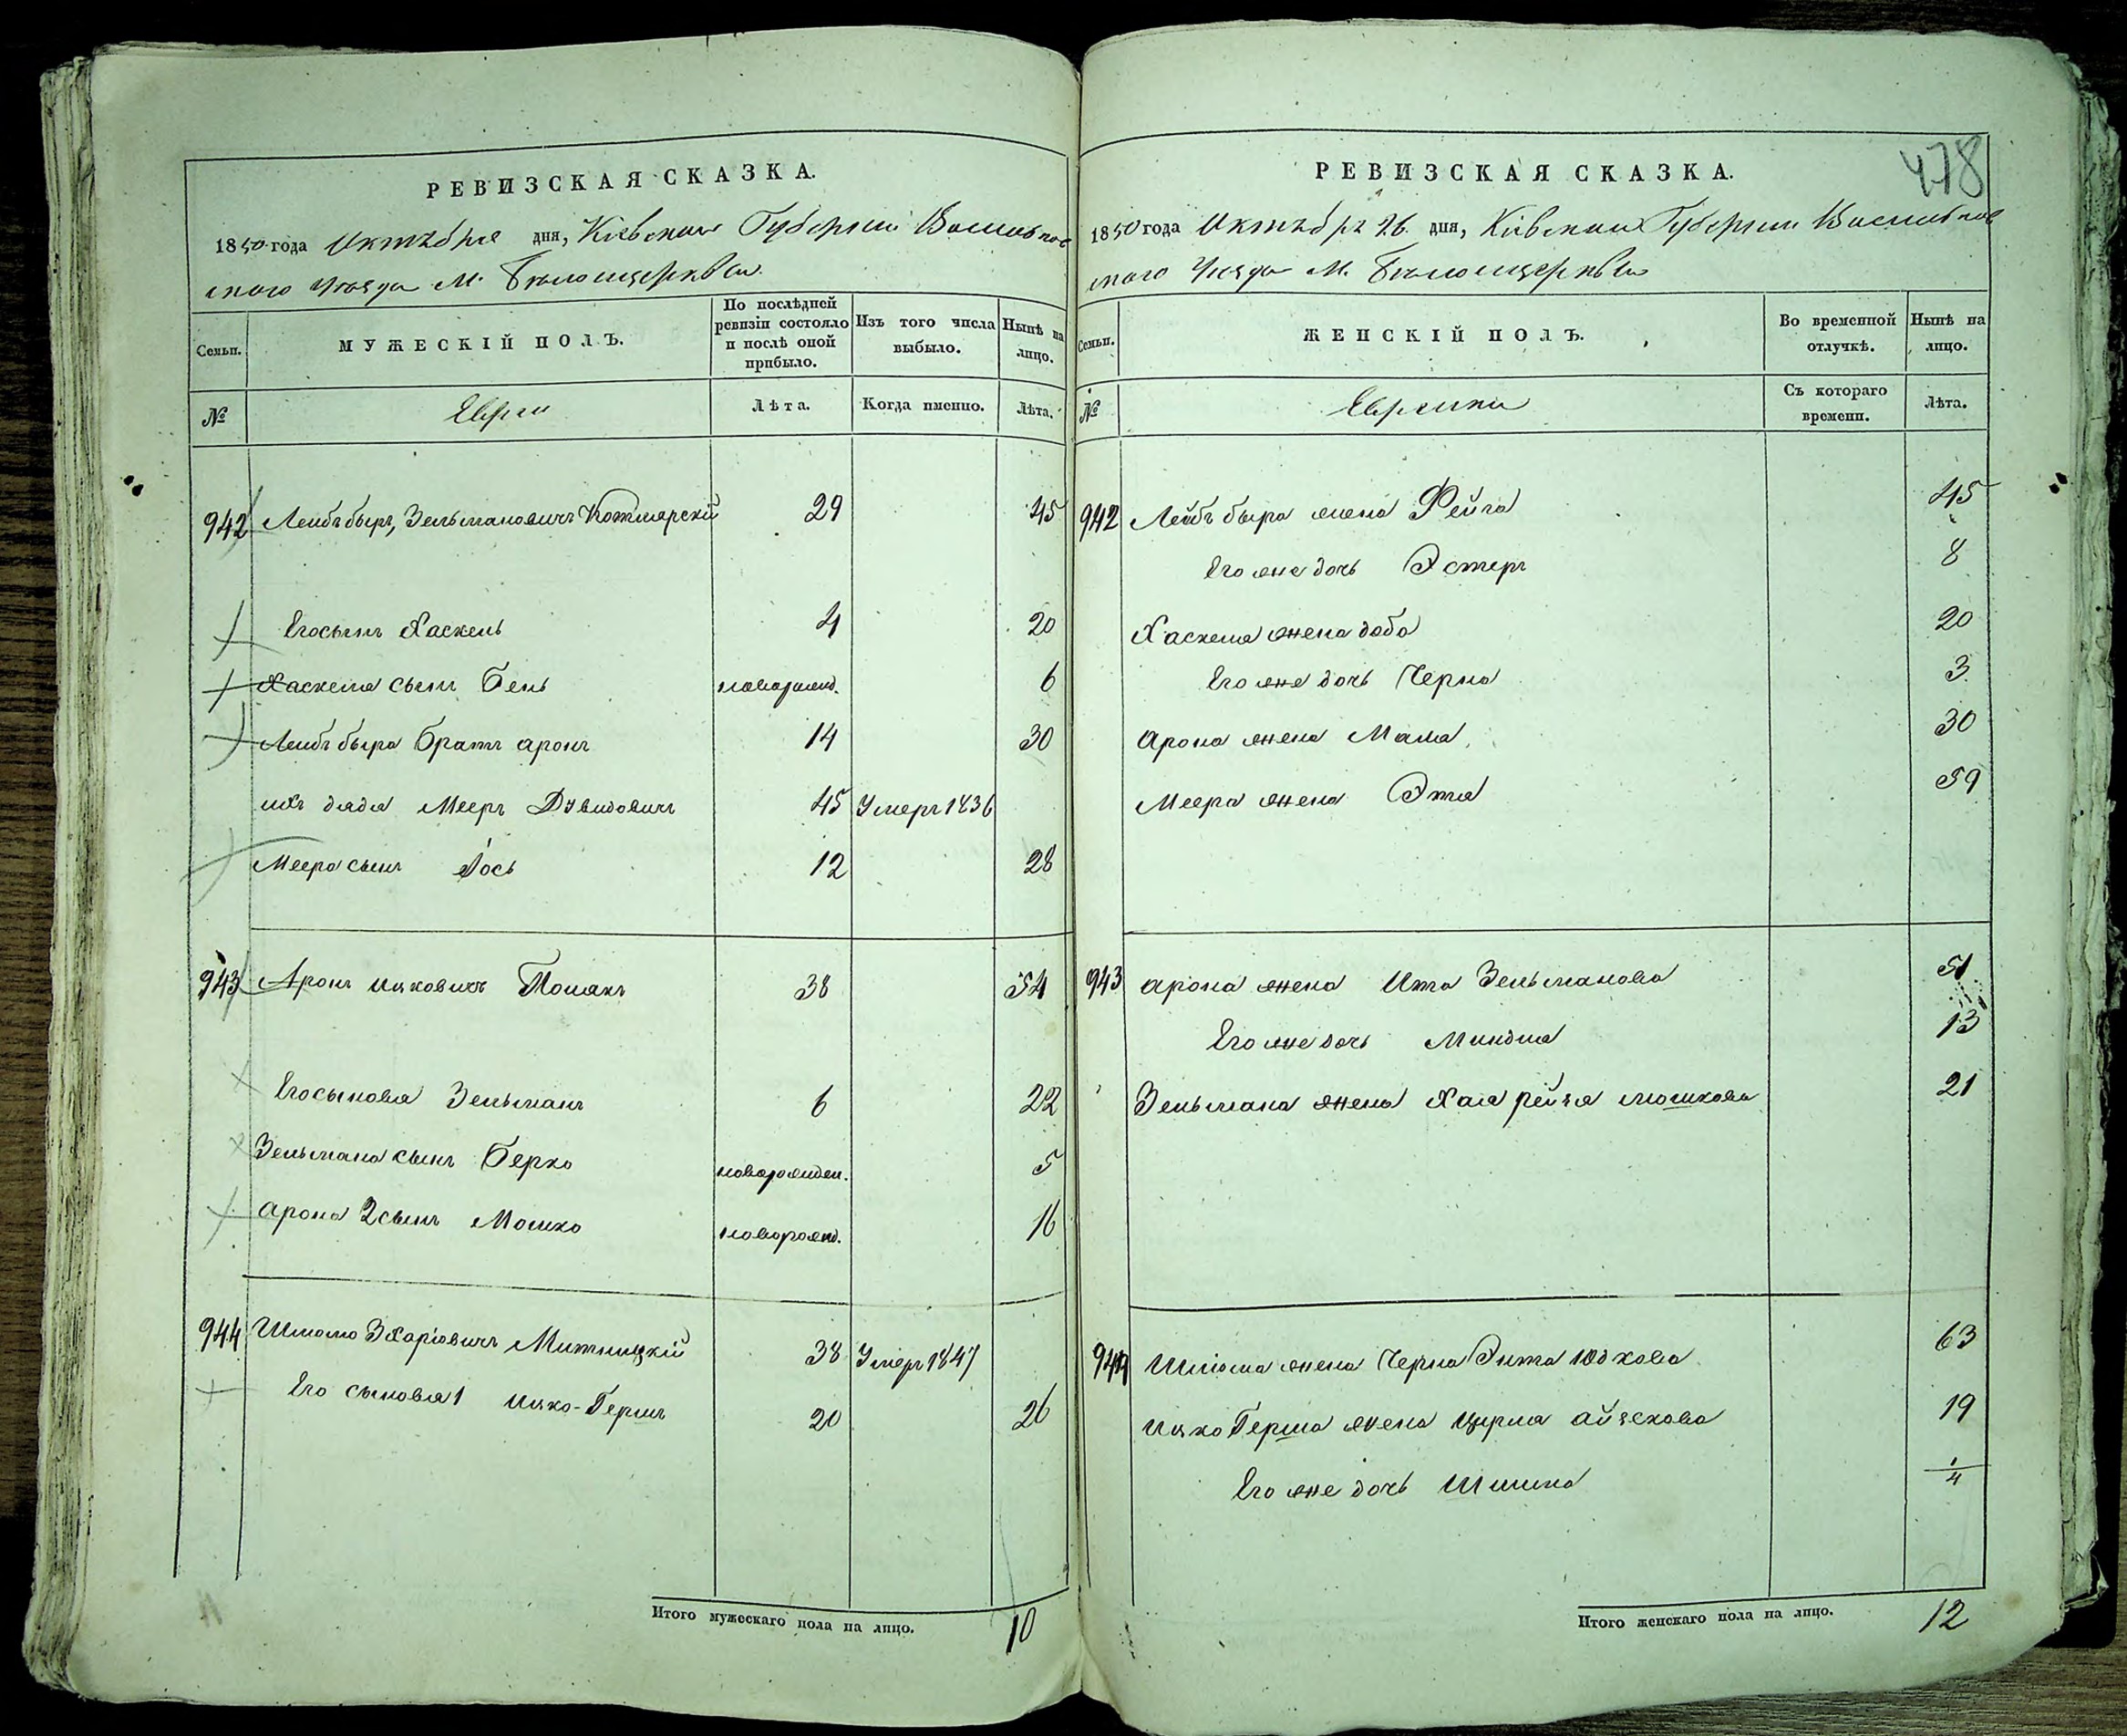 РЕВИЗСКАЯ СКАЗКА.
1850 года Октября дня, Кіевской Губерніи Васильков
скаго Уезда М. Белоцерквы
Семьи.
МУЖЕСКІЙ ПОЛЪ.
По послѣдней ревизіи состояло и послѣ оной прибыло.
Изъ того числа выбыло.
Нынѣ на лицо.
№
Евреи
Лѣта.
Когда именно.
Лѣта.
942 Лейбъ быръ, Зельмановичъ Котлярскій 29 45
Его сынъ Хаскель 4 20
Хаскеля сынъ Бень новорожд. 6
Лейбъ быра братъ Аронъ 14 30
ихъ дядя Мееръ Дувидовичъ 45 Умеръ 1836
Меера сынъ Іось 12 28
943 Аронъ Ицковичъ Полякъ 38 54
Его сыновья Зельманъ 6 22
Зельмана сынъ Берко новорожден. 5
Арона 2 сынъ Мошко новорожд. 16
944 Шлиомо Зхаріовичъ Митницкій 38 Умеръ 1847
Его сыновья 1 Ицко-Гершъ 20 26
Итого мужескаго пола на лицо. 10
478
РЕВИЗСКАЯ СКАЗКА.
1850 года Октября 26 дня, Кіевской Губерніи Васильков
скаго Уезда М. Белоцерквы
Семьи.
ЖЕНСКІЙ ПОЛЪ.
Во временной отлучкѣ.
Нынѣ на лицо.
№
Еврейки
Съ котораго времени.
Лѣта.
942 Лейбъ быра жена Фейга 45
Его же дочь Эстеръ 8
Хаскеля жена доба 20
Его же дочь Черна 3
Арона жена Маля 30
Меера жена Этя 59
943 Арона жена Ита Зельманова 51
Его же дочь Миндля 13
Зельмана жена Хая рейзя мошкова 21
944 Шліома жена Черна Энта Юдкова 63
Ицко Герша жена Цирля Айзекова 19
Его же дочь Шишла 1/4
Итого женскаго пола на лицо. 12